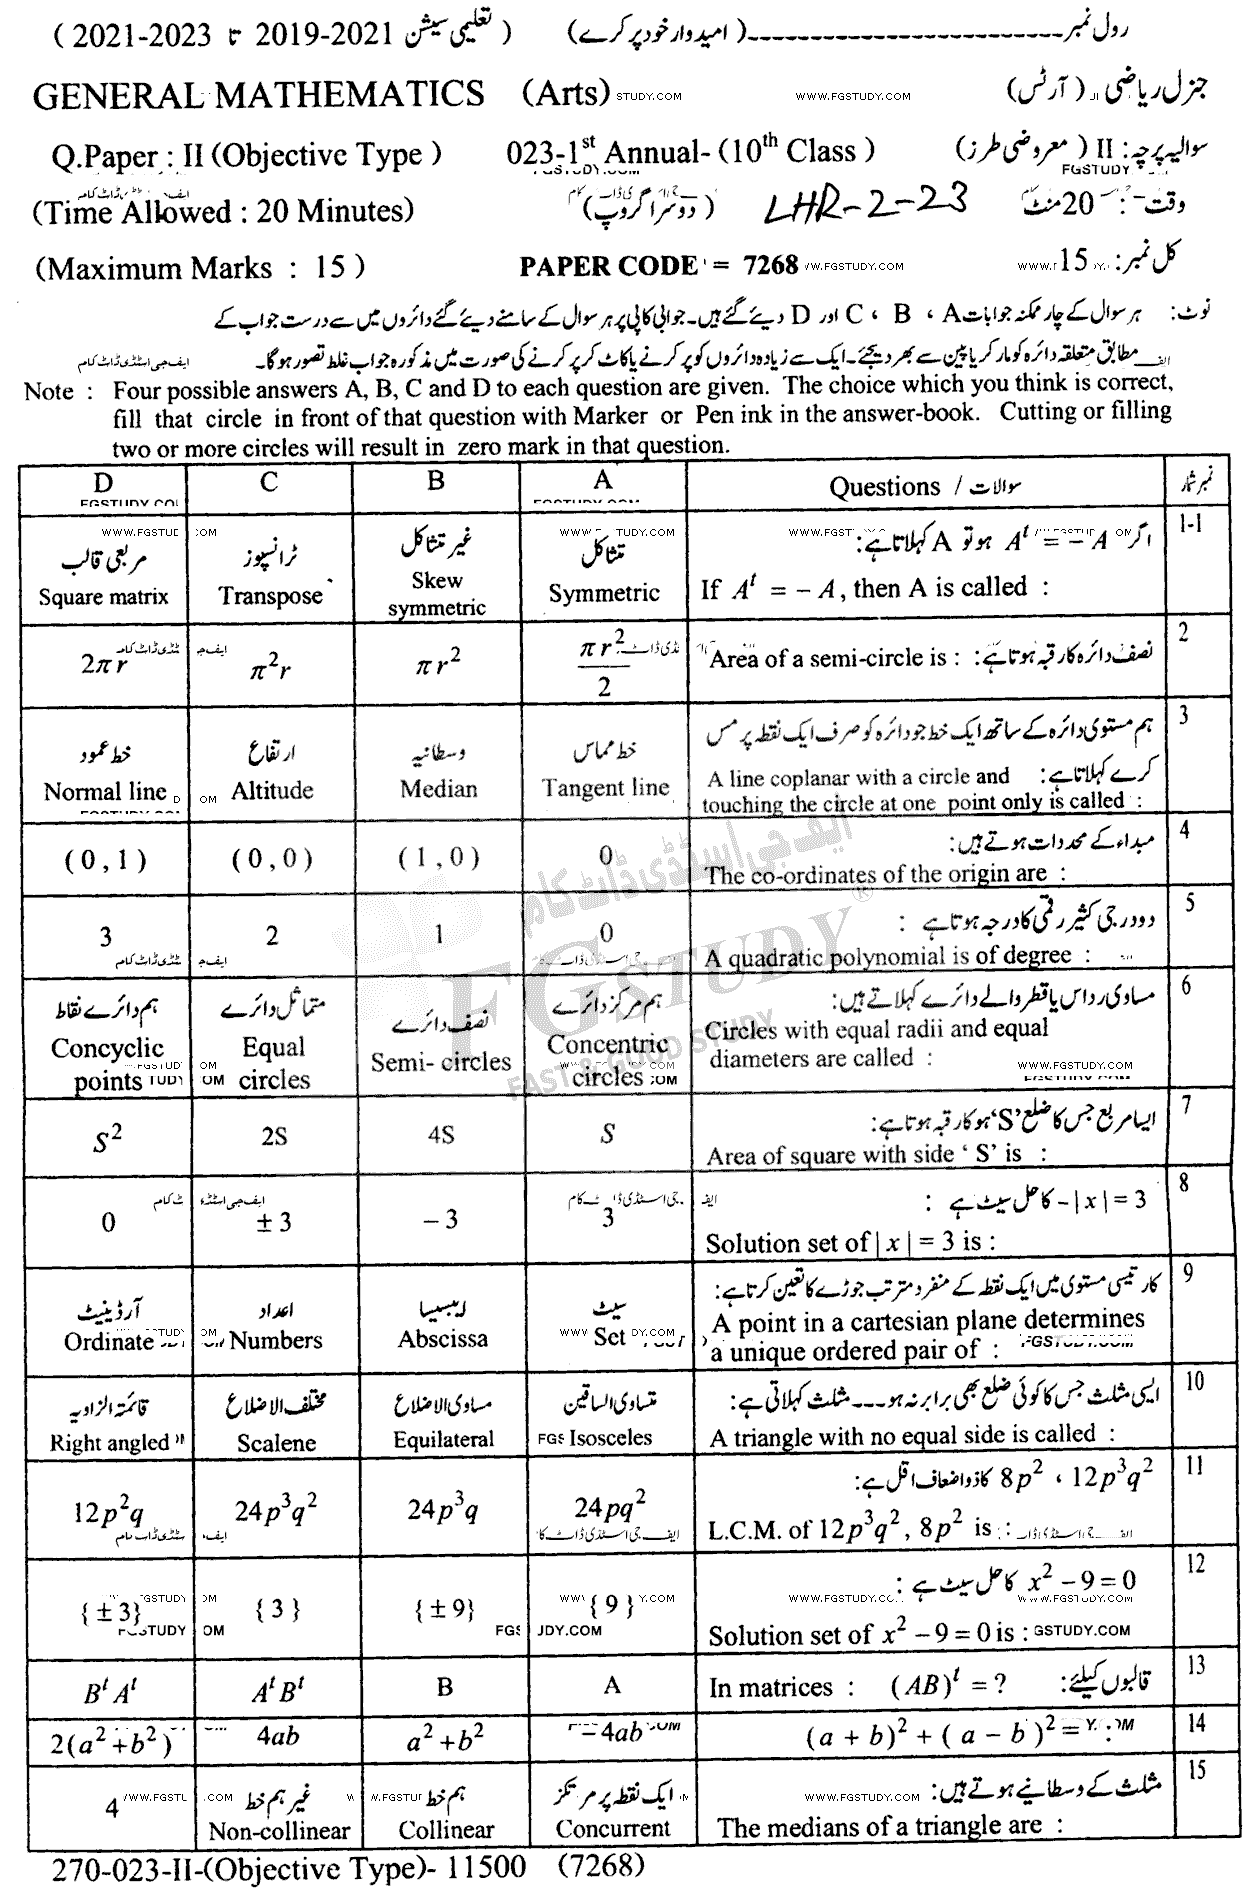 رول نمبر ـــــــــــــــــ ( امیدوار خود پر کرے ) ( تعلیمی سیشن 2019-2021 تا 2021-2023 )
GENERAL MATHEMATICS (Arts) STUDY.COM WWW.FGSTUDY.COM جنرل ریاضی ( آرٹس )
Q.Paper : II (Objective Type ) 023-1st Annual- (10th Class ) سوالیہ پرچہ : II ( معروضی طرز )
(Time Allowed : 20 Minutes) ( دوسرا گروپ ) LHR-2-23 وقت : 20 منٹ
(Maximum Marks : 15 ) PAPER CODE = 7268 کل نمبر : 15
نوٹ : ہر سوال کے چار ممکنہ جوابات A ، B ، C اور D دیئے گئے ہیں۔ جوابی کاپی پر ہر سوال کے سامنے دیئے گئے دائروں میں سے درست جواب کے
مطابق متعلقہ دائرہ کو مارکر یا پین سے بھر دیجئے۔ ایک سے زیادہ دائروں کو پر کرنے یا کاٹ کر پر کرنے کی صورت میں مذکورہ جواب غلط تصور ہوگا۔
Note : Four possible answers A, B, C and D to each question are given. The choice which you think is correct,
fill that circle in front of that question with Marker or Pen ink in the answer-book. Cutting or filling
two or more circles will result in zero mark in that question.
D C B A Questions / سوالات نمبر شمار
مربعی قالب ٹرانسپوز غیر متشاکل متشاکل اگر Aᵗ = − A ہو تو A کہلاتا ہے: 1-1
Square matrix Transpose Skew symmetric Symmetric If Aᵗ = − A, then A is called :
2πr π²r πr² πr²/2 Area of a semi-circle is : نصف دائرہ کا رقبہ ہوتا ہے: 2
خط عمود ارتفاع وسطانیہ خط مماس ہم مستوی دائرہ کے ساتھ ایک خط جو دائرہ کو صرف ایک نقطہ پر مس 3
کرے کہلاتا ہے:
Normal line Altitude Median Tangent line A line coplanar with a circle and
touching the circle at one point only is called :
مبداء کے محددات ہوتے ہیں: 4
(0,1) (0,0) (1,0) 0 The co-ordinates of the origin are :
دو درجی کثیر رقمی کا درجہ ہوتا ہے : 5
3 2 1 0 A quadratic polynomial is of degree :
ہم دائرے نقاط متماثل دائرے نصف دائرے ہم مرکز دائرے مساوی رداس یا قطر والے دائرے کہلاتے ہیں: 6
Concyclic points Equal circles Semi- circles Concentric circles Circles with equal radii and equal
diameters are called :
ایسا مربع جس کا ضلع ‘S’ ہو کا رقبہ ہوتا ہے: 7
S² 2S 4S S Area of square with side ‘ S’ is :
−| x | = 3 کا حل سیٹ ہے : 8
0 ± 3 − 3 3 Solution set of | x | = 3 is :
آرڈینیٹ اعداد ایبسیسا سیٹ کارتیسی مستوی میں ایک نقطہ کے منفرد مترتب جوڑے کا تعین کرتا ہے: 9
Ordinate Numbers Abscissa Set A point in a cartesian plane determines
a unique ordered pair of :
قائمۃ الزاویہ مختلف الاضلاع مساوی الاضلاع متساوی الساقین ایسی مثلث جس کا کوئی ضلع بھی برابر نہ ہو ۔۔۔ مثلث کہلاتی ہے: 10
Right angled Scalene Equilateral Isosceles A triangle with no equal side is called :
8p² ، 12p³q² کا ذواضعاف اقل ہے: 11
12p²q 24p³q² 24p³q 24pq² L.C.M. of 12p³q², 8p² is :
x² − 9 = 0 کا حل سیٹ ہے : 12
{± 3} {3} {± 9} {9} Solution set of x² − 9 = 0 is :
Bᵗ Aᵗ Aᵗ Bᵗ B A In matrices : (AB)ᵗ = ? قالبوں کیلئے: 13
2(a²+b²) 4ab a²+b² − 4ab (a + b)² + ( a − b )² = 14
4 غیر ہم خط ہم خط ایک نقطہ پر مرتکز مثلث کے وسطانیے ہوتے ہیں: 15
Non-collinear Collinear Concurrent The medians of a triangle are :
270-023-II-(Objective Type)- 11500 (7268)
ایف جی اسٹڈی ڈاٹ کام
FG STUDY ®
FAST & GOOD STUDY